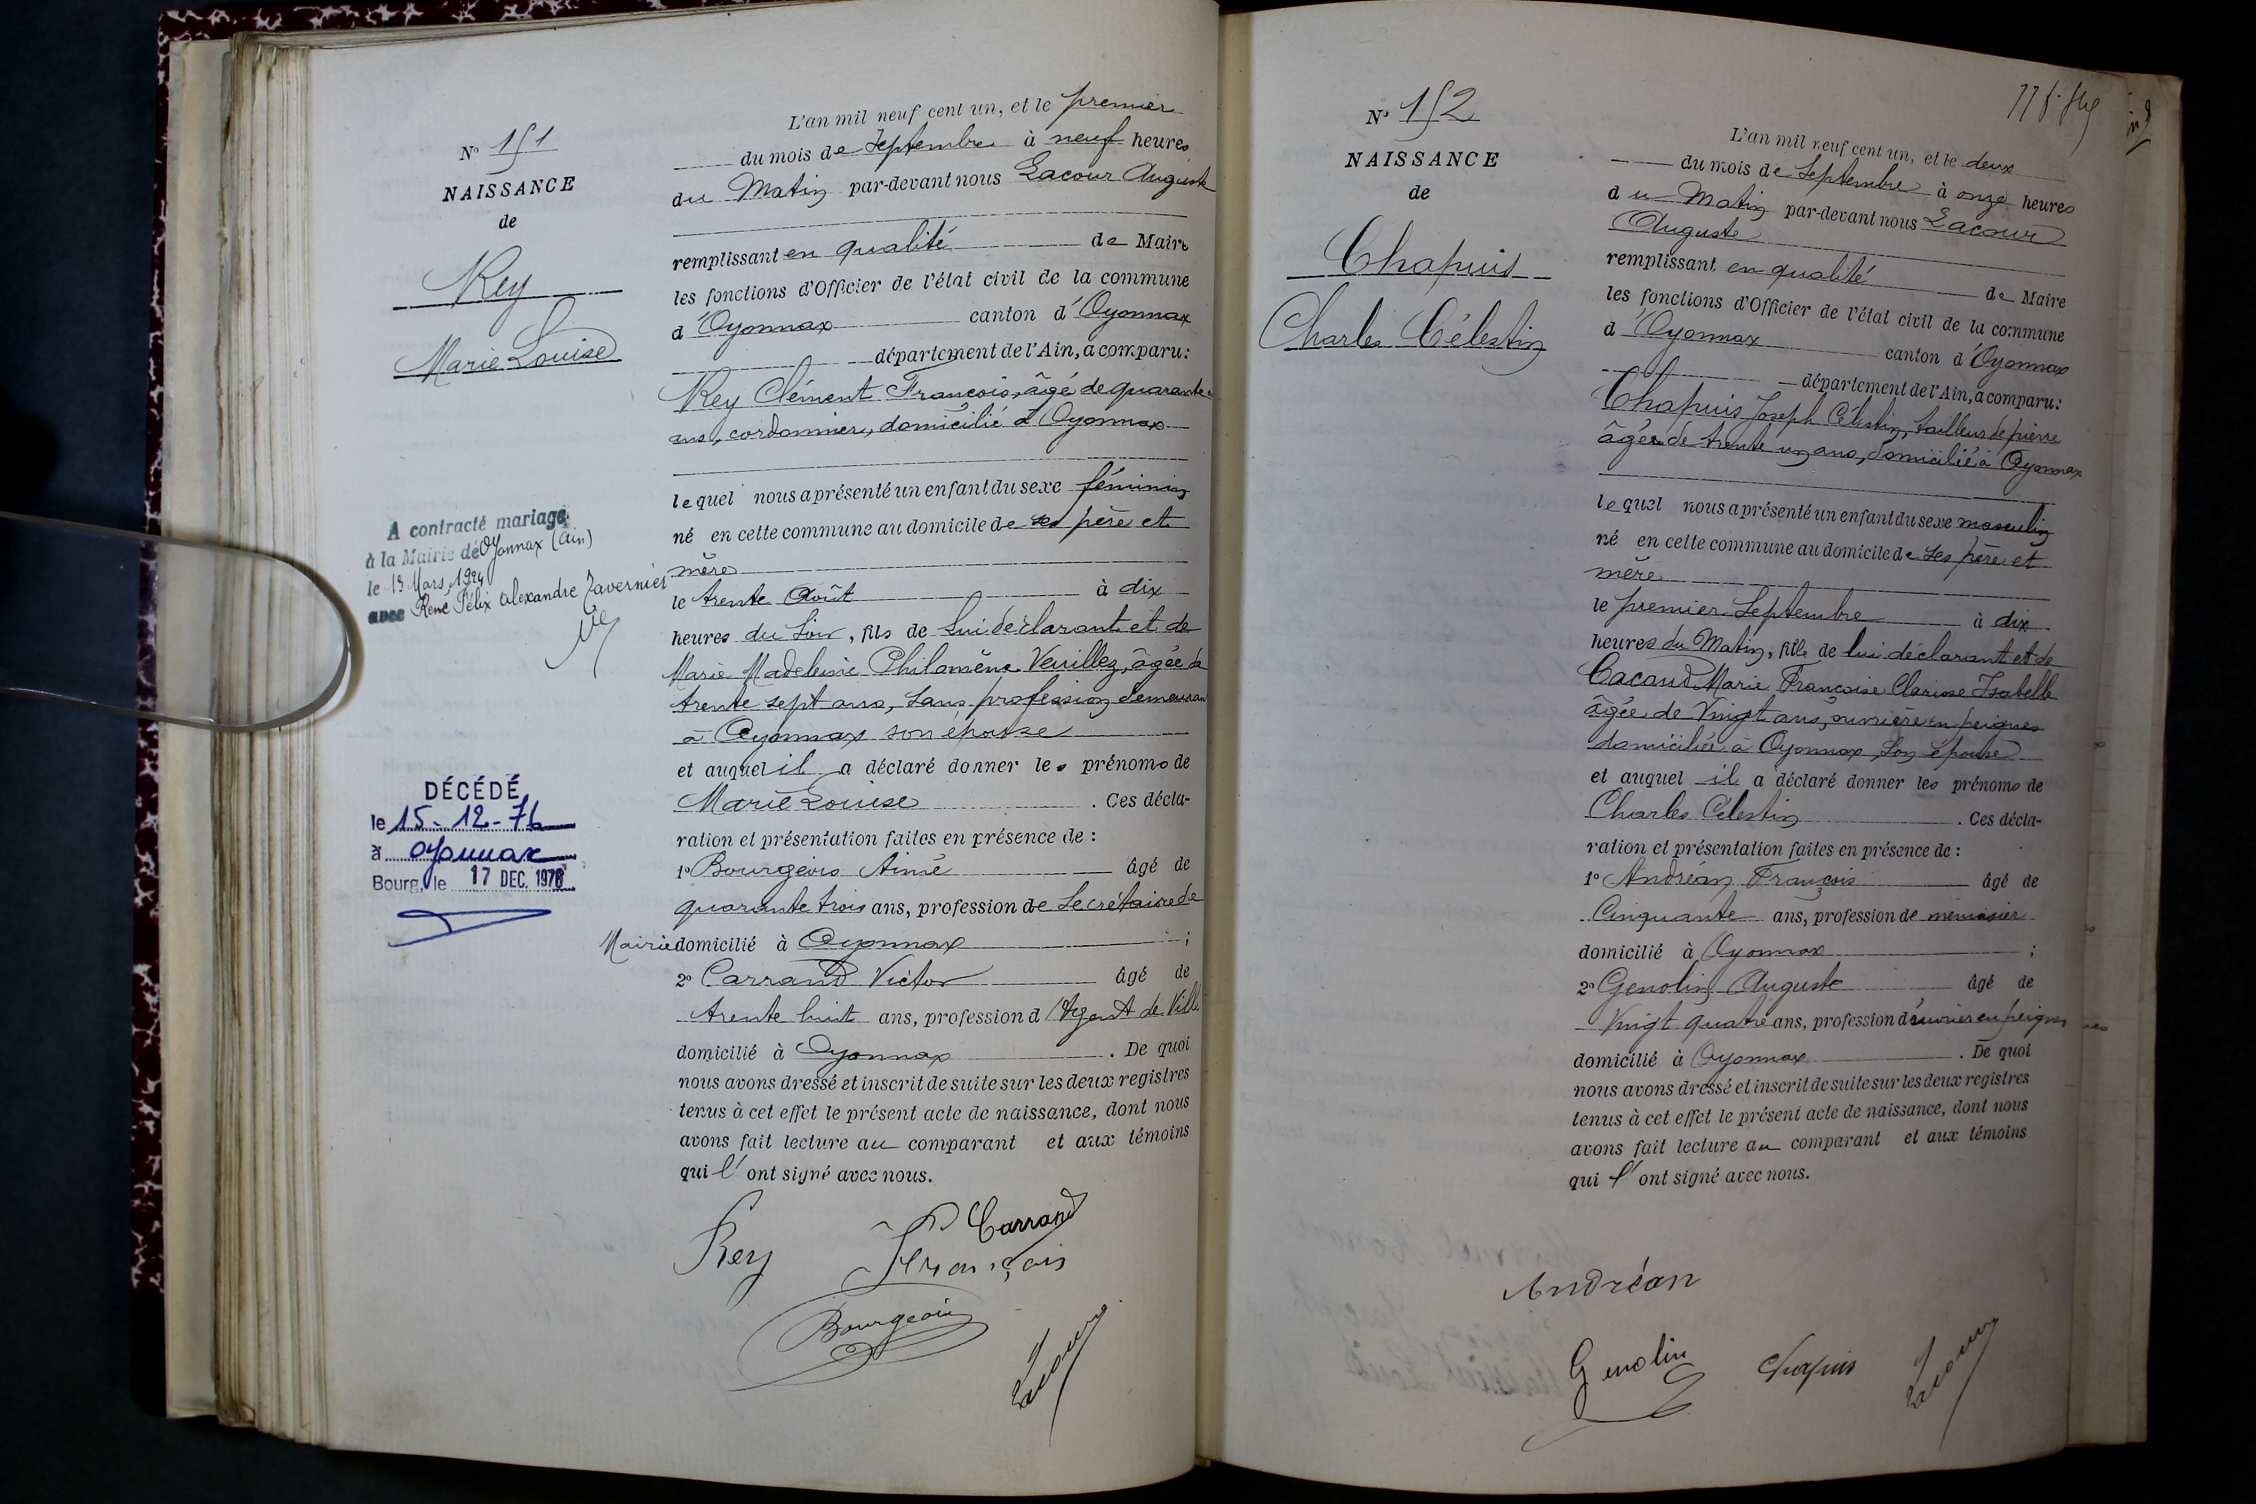 No 151
NAISSANCE
de
Rey
Marie Louise
A contracté mariage
à la Mairie de Oyonnax (Ain)
le 13 Mars 1924
avec René Félix Alexandre Tavernier
DÉCÉDÉ
le 15-12-76
à oyonnax
Bourg, le 17 DEC. 1976
L'an mil neuf cent un, et le premier
du mois de Septembre à neuf heures
du Matin par-devant nous Lacour Auguste
remplissant en qualité de Maire
les fonctions d'Officier de l'état civil de la commune
d'Oyonnax canton d'Oyonnax
département de l'Ain, a comparu:
Rey Clément François, âgé de quarante
ans, cordonnier, domicilié à Oyonnax
lequel nous a présenté un enfant du sexe féminin
né en cette commune au domicile de ses père et
mère
le trente Août à dix
heures du Soir, fils de lui déclarant et de
Marie Madeleine Philomène Veuillez, âgée de
trente sept ans, sans profession demeurant
à Oyonnax son épouse
et auquel il a déclaré donner les prénoms de
Marie Louise . Ces décla-
ration et présentation faites en présence de :
1o Bourgeois Aimé âgé de
quarante trois ans, profession de Secrétaire de
Mairie domicilié à Oyonnax ;
2o Carrand Victor âgé de
trente huit ans, profession d'Agent de Ville
domicilié à Oyonnax . De quoi
nous avons dressé et inscrit de suite sur les deux registres
tenus à cet effet le présent acte de naissance, dont nous
avons fait lecture au comparant et aux témoins
qui l'ont signé avec nous.
Rey François Carrand
Bourgeois
Lacour
No 152
NAISSANCE
de
Chapuis
Charles Célestin
L'an mil neuf cent un, et le deux
du mois de Septembre à onze heures
du Matin par-devant nous Lacour
Auguste
remplissant en qualité de Maire
les fonctions d'Officier de l'état civil de la commune
d'Oyonnax canton d'Oyonnax
département de l'Ain, a comparu:
Chapuis Joseph Célestin, tailleur de pierre
âgé de trente un ans, domicilié à Oyonnax
lequel nous a présenté un enfant du sexe masculin
né en cette commune au domicile de ses père et
mère
le premier Septembre à dix
heures du Matin, fils de lui déclarant et de
Cacaud Marie Françoise Clarisse Isabelle
âgée de Vingt ans, ouvrière en peignes
domiciliée à Oyonnax, son épouse
et auquel il a déclaré donner les prénoms de
Charles Célestin . Ces décla-
ration et présentation faites en présence de :
1o Andréan François âgé de
Cinquante ans, profession de menuisier
domicilié à Oyonnax ;
2o Genolin Auguste âgé de
Vingt quatre ans, profession d'ouvrier en peignes
domicilié à Oyonnax . De quoi
nous avons dressé et inscrit de suite sur les deux registres
tenus à cet effet le présent acte de naissance, dont nous
avons fait lecture au comparant et aux témoins
qui l'ont signé avec nous.
Andréan
Genolin Chapuis Lacour